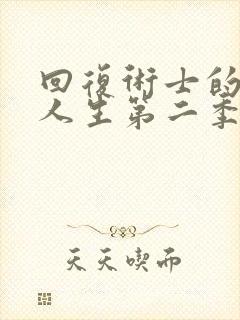 回復術士的
人生第二季
天天喫而